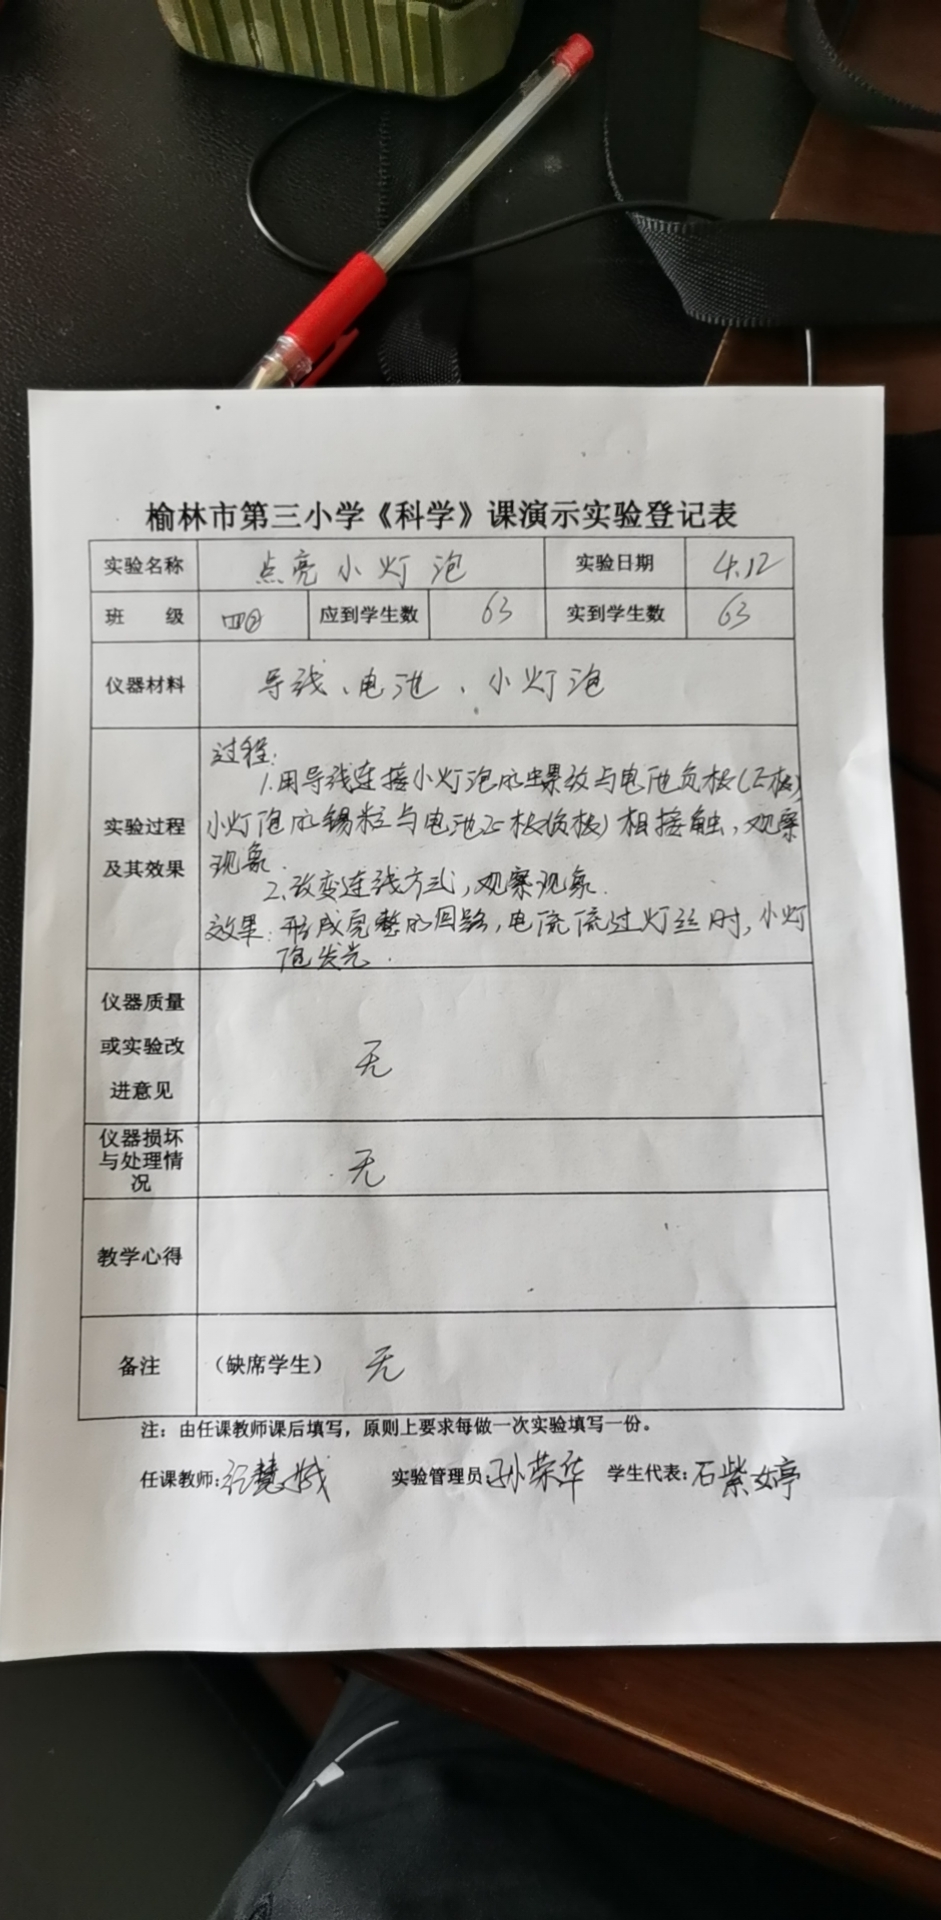 榆林市第三小学《科学》课演示实验登记表
实验名称 点亮小灯泡 实验日期 4.12
班 级 四② 应到学生数 63 实到学生数 63
仪器材料 导线、电池、小灯泡
过程:
1.用导线连接小灯泡的螺纹与电池负极(正极)
实验过程 小灯泡的锡粒与电池正极(负极)相接触,观察
及其效果 现象.
2.改变连线方式,观察现象.
效果:形成完整的回路,电流流过灯丝时,小灯
泡发光.
仪器质量
或实验改
进意见 无
仪器损坏
与处理情
况 无
教学心得
备注 (缺席学生) 无
注:由任课教师课后填写,原则上要求每做一次实验填写一份。
任课教师: 实验管理员:孙荣华 学生代表:石紫婷